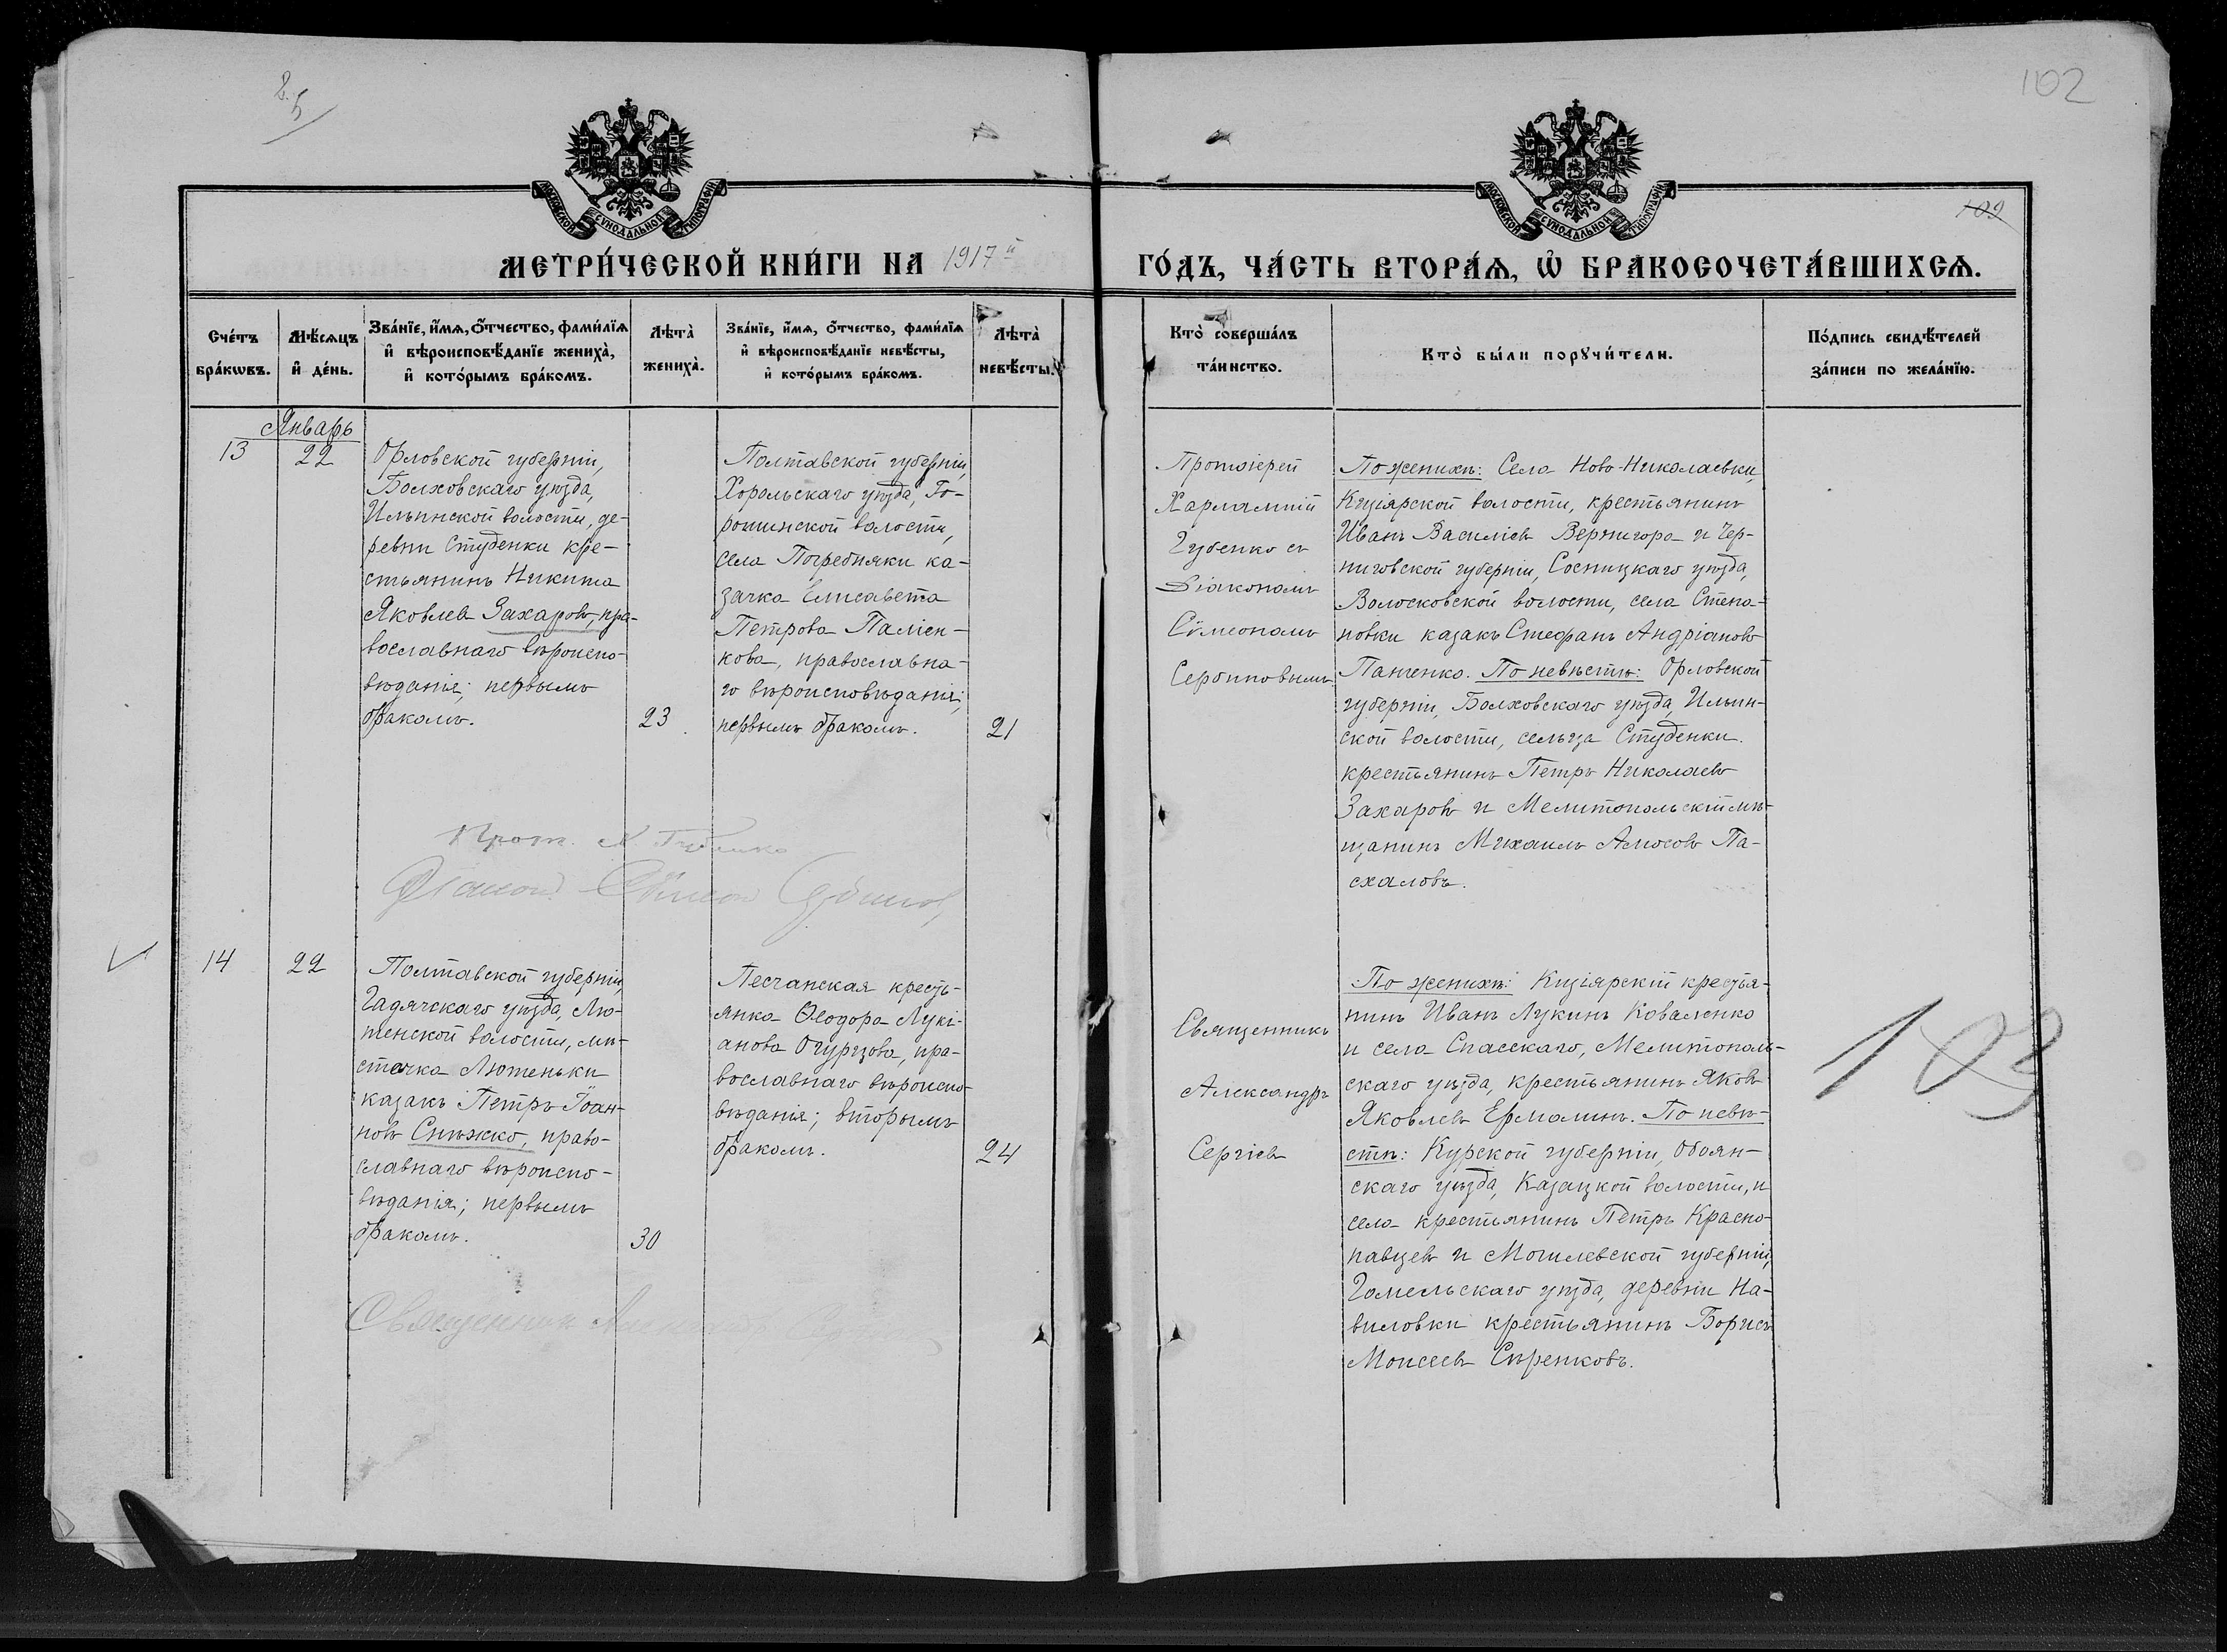 102
109
МОСКОВСКОЙ СУНОДАЛЬНОЙ ТИПОГРАФІИ
МОСКОВСКОЙ СУНОДАЛЬНОЙ ТИПОГРАФІИ
МЕТРИ́ЧЕСКОЙ КНИ́ГИ НА 1917й ГО́ДЪ, ЧА́СТЬ ВТОРА́Ѧ, Ѽ БРАКОСОЧЕТА́ВШИХСѦ.
Сче́тъ
бра́кωвъ.
Мѣ́сяцъ
и҆ де́нь.
Зва́нїе, и҆́мя, ѻ҆́тчество, фами́лїя
и҆ вѣроисповѣ́данїе жениха̀,
и҆ кото́рымъ бра́комъ.
Лѣта̀
жениха̀.
Зва́нїе, и҆́мя, ѻ҆́тчество, фами́лїя
и҆ вѣроисповѣ́данїе невѣ́сты,
и҆ кото́рымъ бра́комъ.
Лѣта̀
невѣ́сты.
Кто̀ соверша́лъ
та́инство.
Кто̀ бы́ли порꙋчи́тели.
По́дпись свидѣ́телей
за́писи по жела́нїю.
Январь
13
22
Орловской губерніи,
Болховскаго уѣзда,
Ильинской волости, де-
ревни Студенки кре-
стьянинъ Никита
Яковлевъ Захаровъ, пра-
вославнаго вѣроиспо-
вѣданія; первымъ
бракомъ.
23
Полтавской губерніи,
Хорольскаго уѣзда, Го-
рошинской волости,
села Погребняки ка-
зачка Елисавета
Петрова Паліен-
кова, православна-
го вѣроисповѣданія;
первымъ бракомъ.
21
Протоіерей
Харлампій
Губенко съ
Діакономъ
Сѵмеономъ
Сербиновымъ
По женихѣ: Села Ново-Николаевки,
Кизіярской волости, крестьянинъ
Иванъ Василіевъ Вернигора и Чер-
ниговской губерніи, Сосницкаго уѣзда,
Волосковской волости, села Степа-
новки казакъ Стефанъ Андріановъ
Панченко. По невѣстѣ: Орловской
губерніи, Болховскаго уѣзда, Ильин-
ской волости, сельца Студенки
крестьянинъ Петръ Николаевъ
Захаровъ и Мелитопольскій мѣ-
щанинъ Михаилъ Амосовъ Па-
схаловъ.
Прот. Х. Губенко
Діаконъ Сѵмеонъ Сербиновъ
14
22
Полтавской губерніи,
Гадячскаго уѣзда, Лю-
тенской волости, мѣ-
стечка Лютеньки
казакъ Петръ Іоан-
новъ Снѣжко, право-
славнаго вѣроиспо-
вѣданія; первымъ
бракомъ.
30
Песчанская кресть-
янка Ѳеодора Лукі-
анова Огурцова, пра-
вославнаго вѣроиспо-
вѣданія; вторымъ
бракомъ.
24
Священникъ
Александръ
Сергіевъ
По женихѣ: Кизіярскій крестья-
нинъ Иванъ Лукинъ Коваленко
и села Спасскаго, Мелитополь-
скаго уѣзда, крестьянинъ Яковъ
Яковлевъ Ермолинъ. По невѣ-
стѣ: Курской губерніи, Обоян-
скаго уѣзда, Казацкой волости, и
села крестьянинъ Петръ Красно-
павцевъ и Могилевской губерніи,
Гомельскаго уѣзда, деревни На-
виловки крестьянинъ Борисъ
Моисеевъ Сѣренковъ.
Священникъ
103